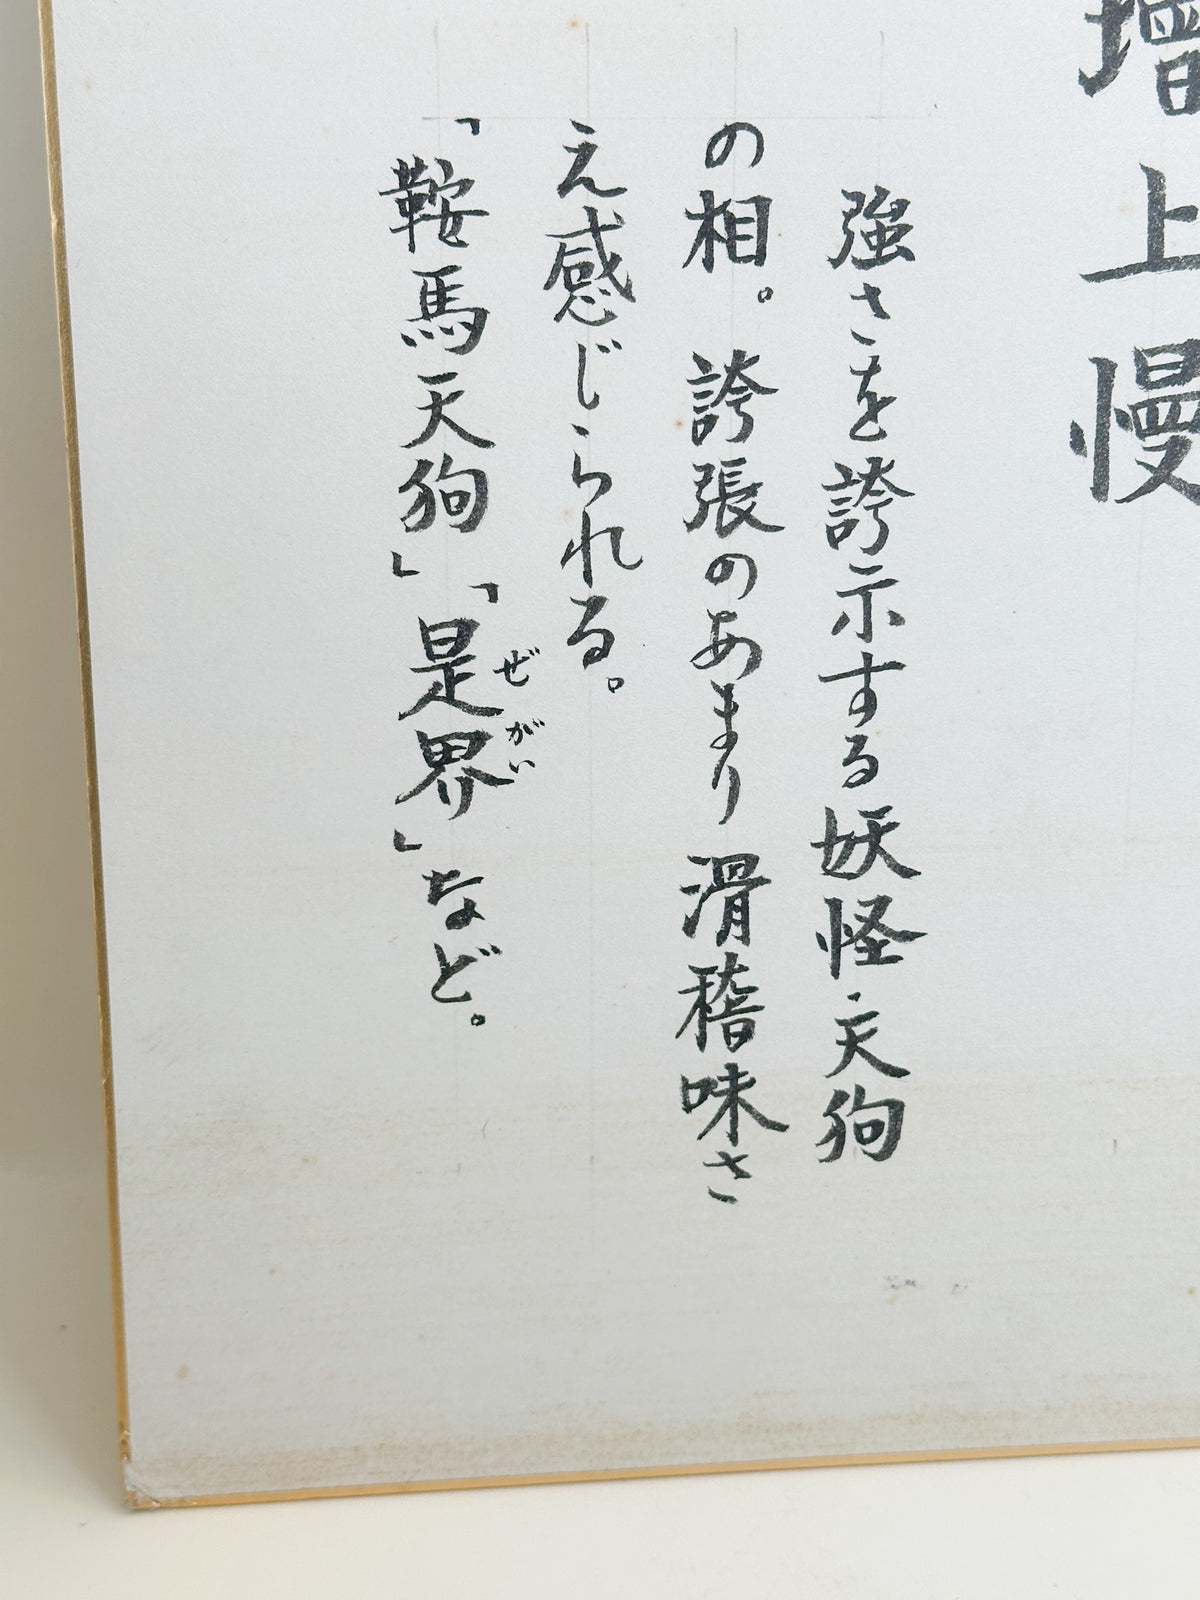 増上慢
強さを誇示する妖怪・天狗
の相。誇張のあまり滑稽味さ
え感じられる。
「鞍馬天狗」「是界」など。
ぜがい